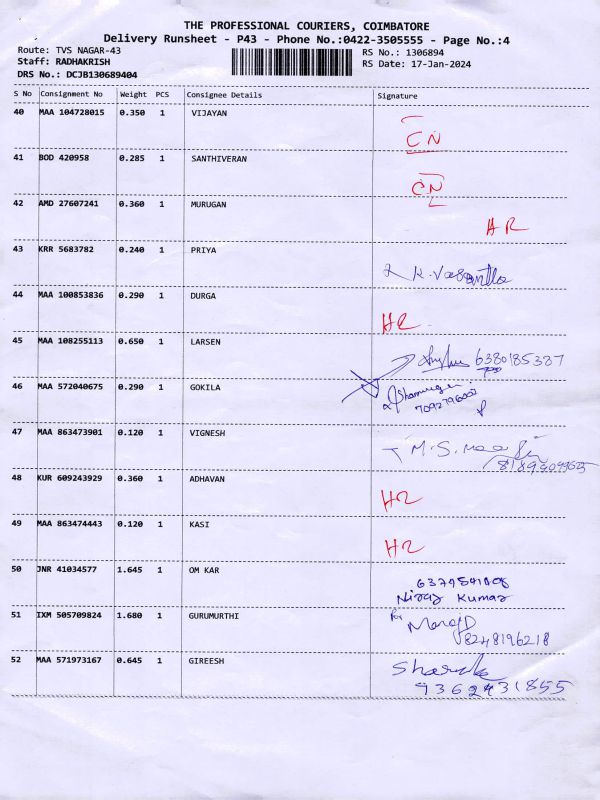 THE PROFESSIONAL COURIERS, COIMBATORE
Delivery Runsheet - P43 - Phone No.:0422-3505555 - Page No.:4
Route: TVS NAGAR-43 RS No.: 1306894
Staff: RADHAKRISH RS Date: 17-Jan-2024
DRS No.: DCJB130689404
S No Consignment No Weight PCS Consignee Details Signature
40 MAA 104728015 0.350 1 VIJAYAN
CN
41 BOD 420958 0.285 1 SANTHIVERAN
CN
42 AMD 27607241 0.360 1 MURUGAN
HR
43 KRR 5683782 0.240 1 PRIYA
K. Vasantha
44 MAA 100853836 0.290 1 DURGA
HR
45 MAA 108255113 0.650 1 LARSEN
6380185387
46 MAA 572040675 0.290 1 GOKILA
47 MAA 863473901 0.120 1 VIGNESH
M.S.
48 KUR 609243929 0.360 1 ADHAVAN
HR
49 MAA 863474443 0.120 1 KASI
HR
50 JNR 41034577 1.645 1 OM KAR
Niraj Kumar
51 IXM 505709824 1.680 1 GURUMURTHI
for
8248196218
52 MAA 571973167 0.645 1 GIREESH
9362431855